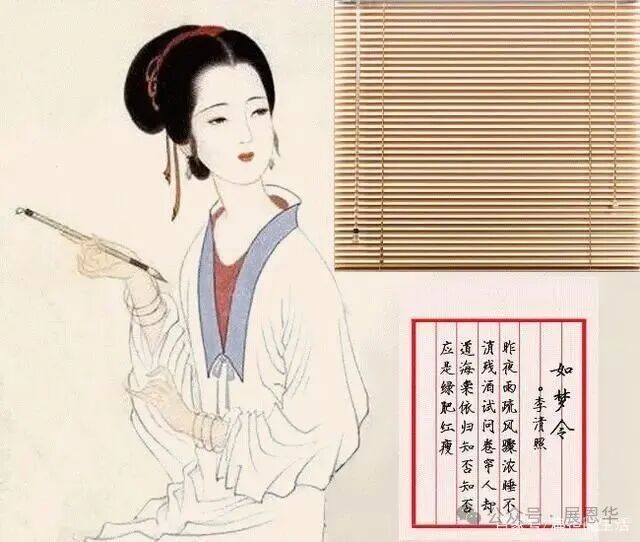 如梦令
。李清照
昨夜雨疏风骤浓睡不
消残酒试问卷帘人却
道海棠依归知否知否
应是绿肥红瘦
公众号 · 展恩华